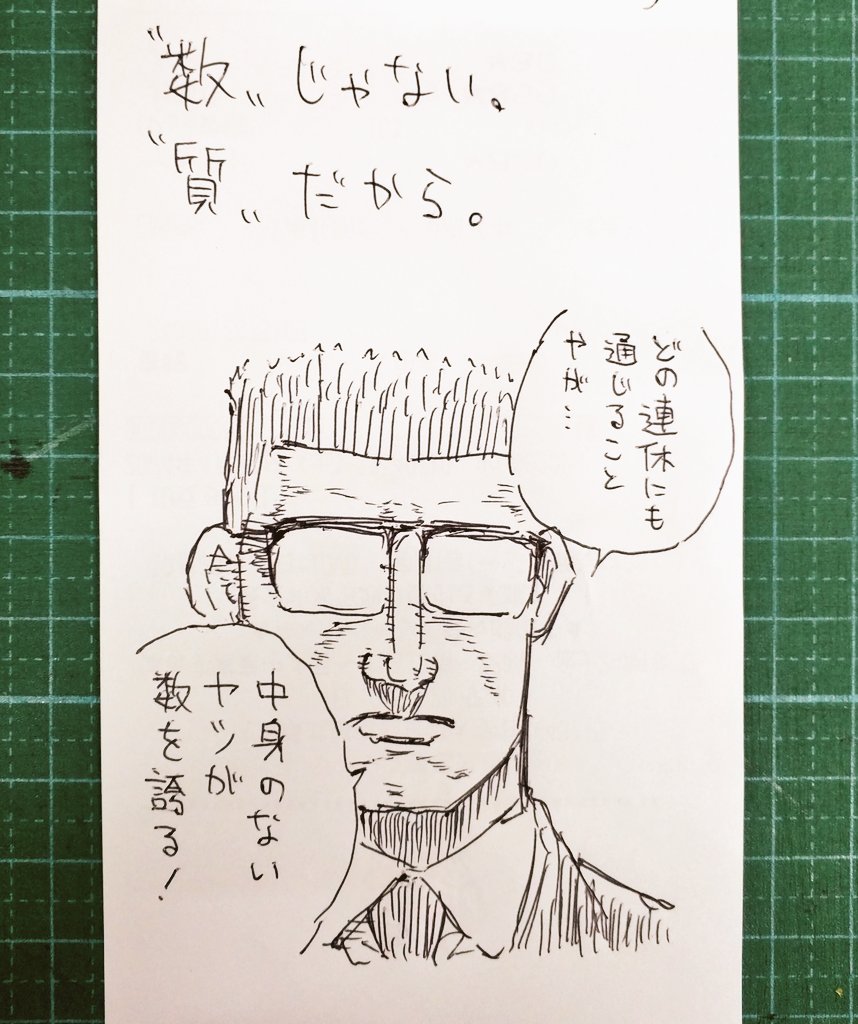 〝数〟じゃない。
〝質〟だから。
どの連休にも
通じること
やが…
中身のない
ヤツが
数を誇る！